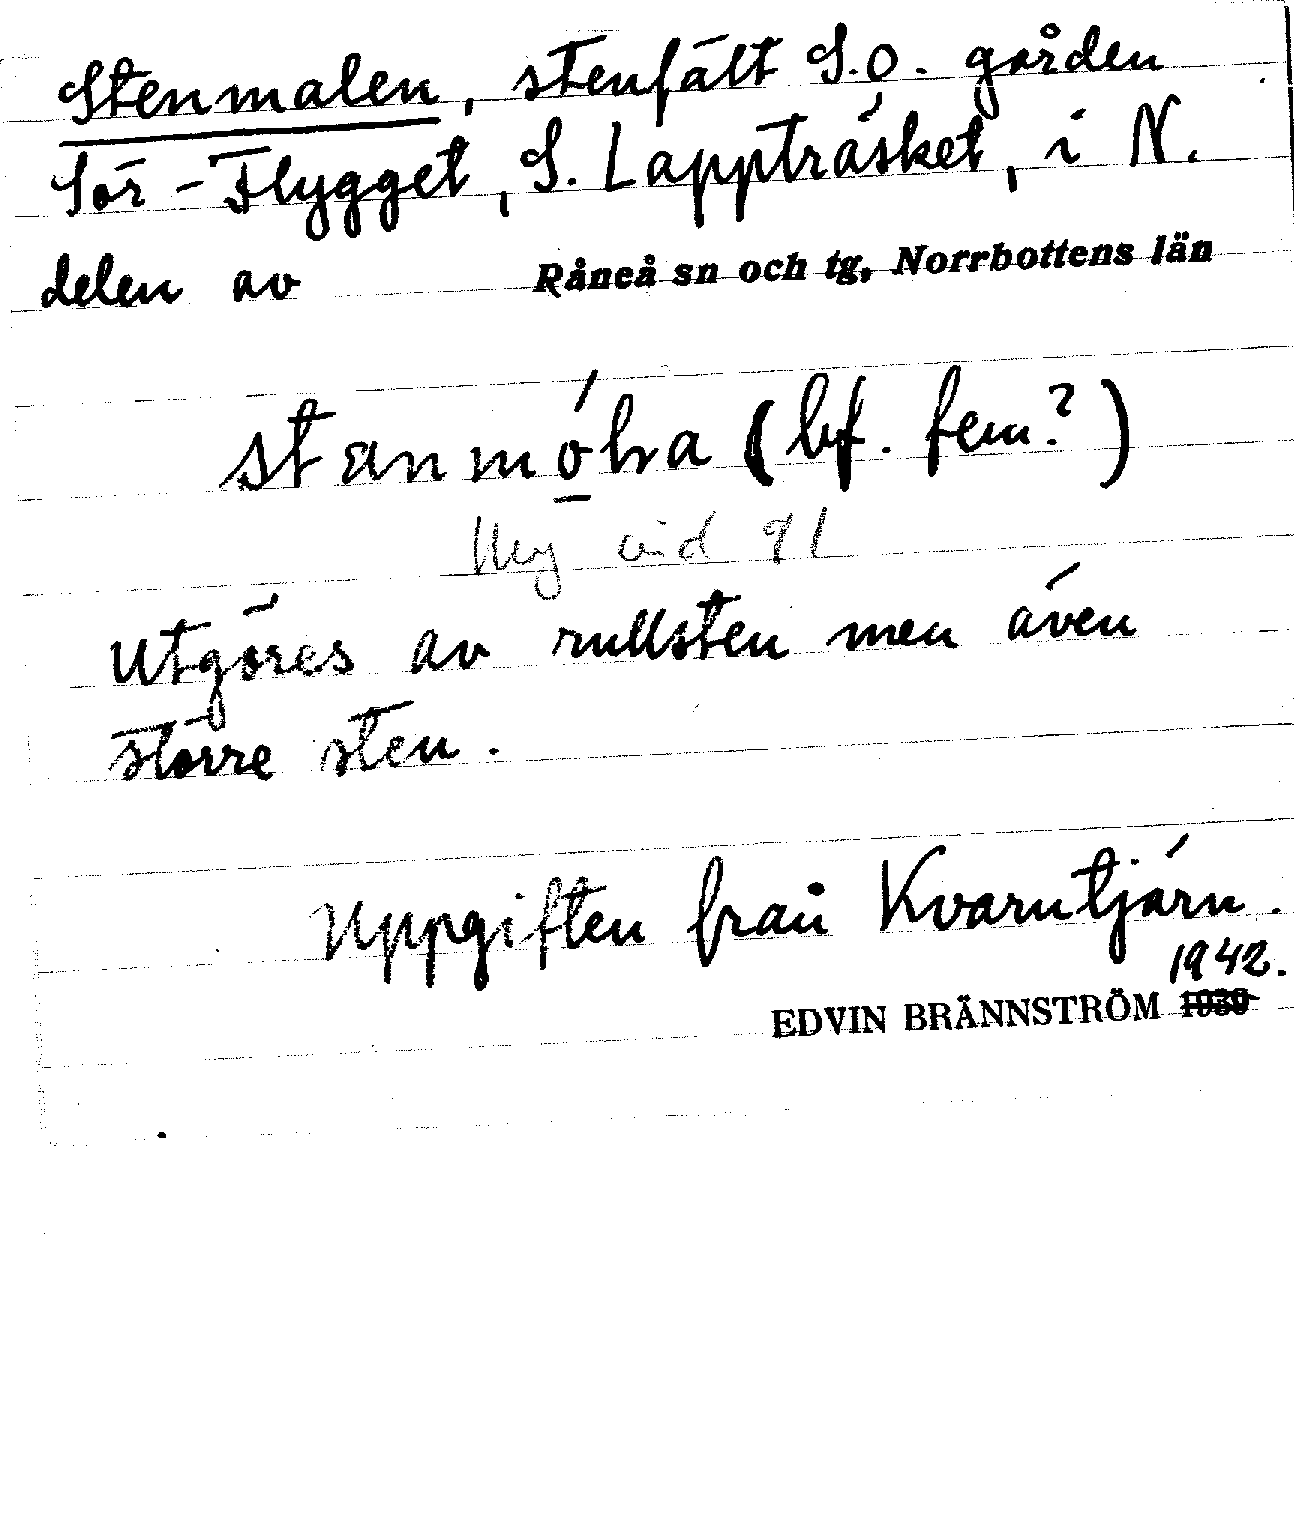 Stenmalen, stenfält S.O. gården
Sör-Flygget, S. Lappträsket, i N.
delen av Råneå sn och tg, Norrbottens län
(bf. fem.?)
Utgöres av rullsten men även
större sten.
Uppgiften från Kvarntjärn.
1942.
EDVIN BRÄNNSTRÖM 1939